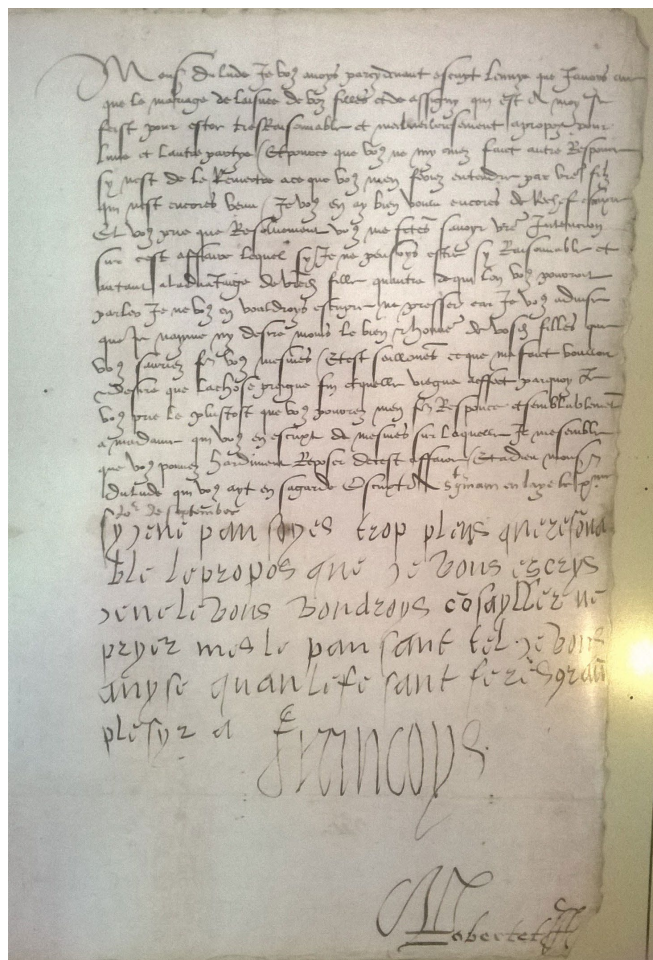 Mons. du lude Je voz avoysparcydevant escript lenvye que Javoys
que le mariage de laisnee de voz filles et de assigny qui est A moy se
feist pour estre tresRaisonnable et merveilleusement apropoz pour
lune et lautre partye / Et pource que voz ne my avez faict autre Responce
sy nest de le Remectre ace que voz men ferez entendre par vre filz
qui nest encores venu / Je voz en ay bien voulu encores de Rechef escripre
Et voz prie que Resoluement voz me fetes savoyr vre Intencion
sur cest affaire lequel sy Je ne pensoys estre sy Raisonnable et
autant aladvantaige de vred fille quautre dequi lon voz pourroit
parler Je ne voz en vouldroys escripre ne presser car Je voz advise
que Je nayme ny desire moins le bien & honneur de vosd filles que
voz sauriez fe voz mesmes / Et cest seullement ce que me faict vouloir
desirer que lachose preigne fin et quelle viegne aeffect parquoy Je
voz prie le plustost que voz pourrez men fe Responce et semblablement
a madame qui voz en escript de mesmes sur laquelle Je me semble
que voz pouvez hardiment Reposer de cest affaire / Et adieu mons
du lude qui voz ayt en sa garde Escript A St germain en laye le
Jor de septembre
sy je ne pansoyes trop plus que resona
ble le propos que je vous escrys
je ne le vous voudroys cosayller ne
pryer mes le pansant tel je vous
avyse quan le fesant ferés gran
plesyr a
Francoys
Robertet